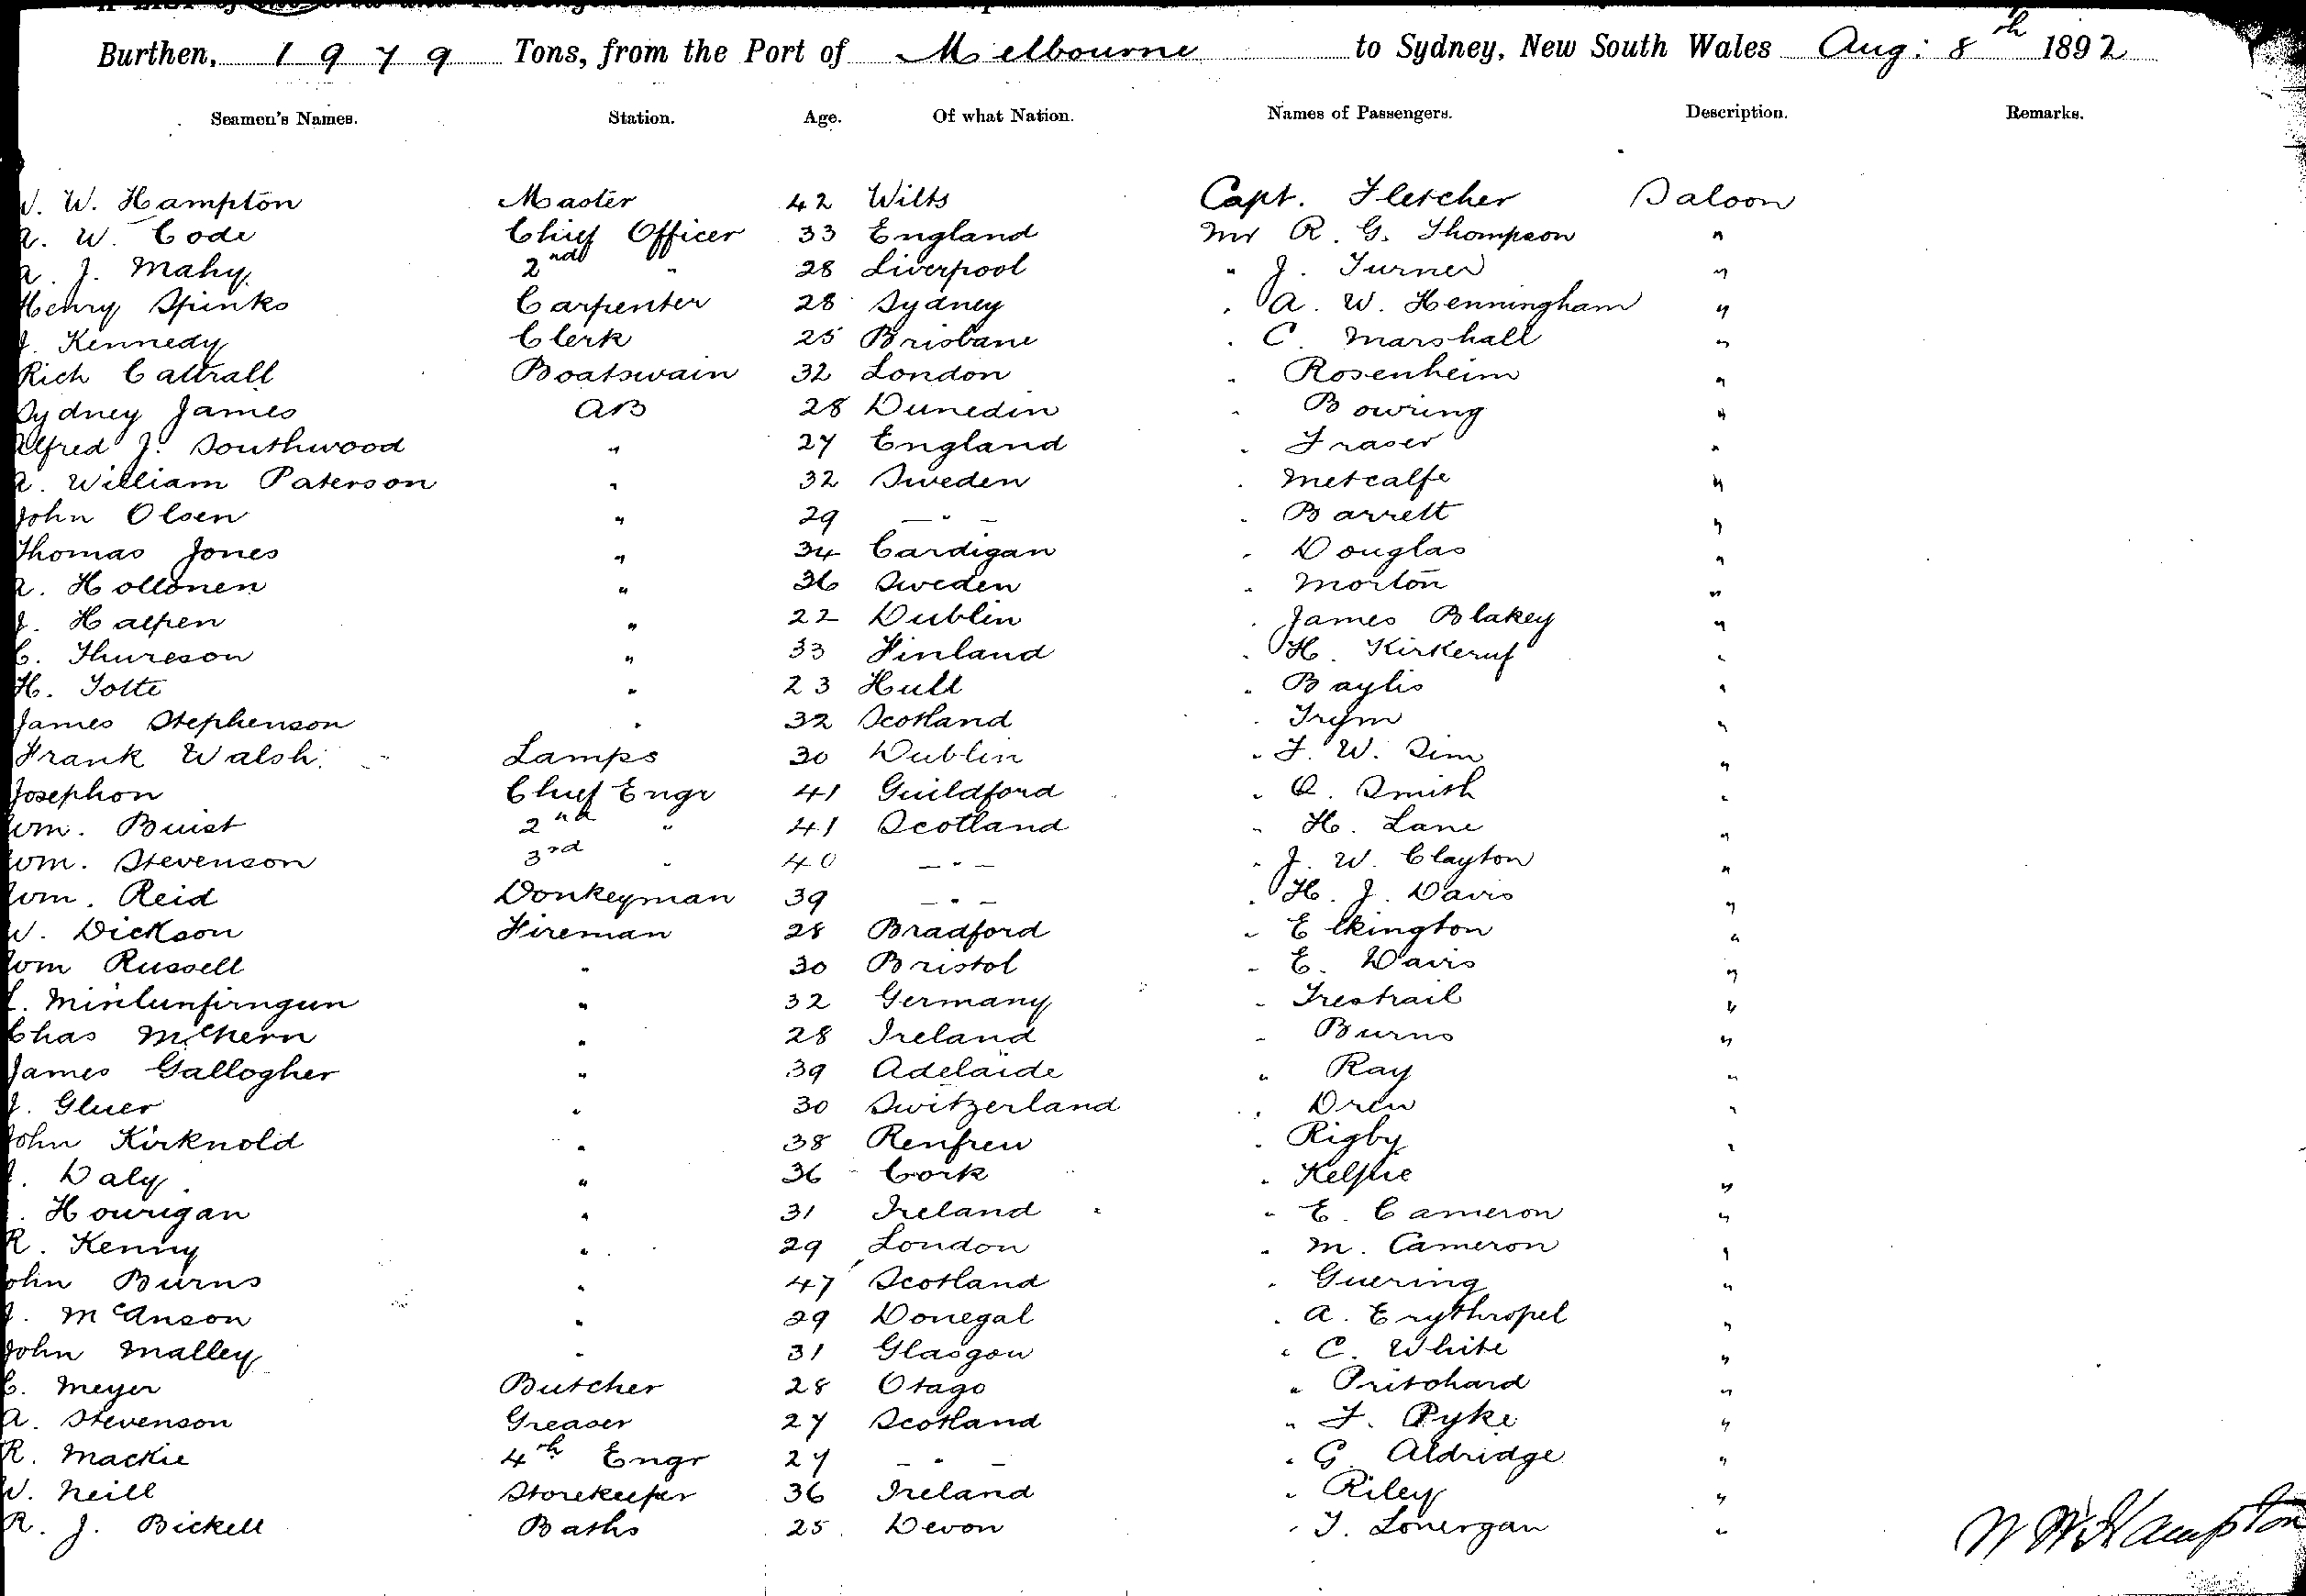 Burthen, 1979 Tons, from the Port of Melbourne to Sydney, New South Wales Aug: 8th 1892
Seamen's Names. Station. Age. Of what Nation. Names of Passengers. Description. Remarks.
W. W. Hampton Master 42 Wilts Capt. Fletcher Saloon
A. W. Code Chief Officer 33 England Mr R. G. Thompson "
A. J. Mahy 2nd " 28 Liverpool " J. Turner "
Henry Spinks Carpenter 28 Sydney " A. W. Henningham "
J. Kennedy Clerk 25 Brisbane " C. Marshall "
Rich Cattrall Boatswain 32 London " Rosenheim "
Sydney James AB 28 Dunedin " Bowring "
Alfred J. Southwood " 27 England " Fraser "
A. William Paterson " 32 Sweden " Metcalfe "
John Olsen " 29 — " — " Barrett "
Thomas Jones " 34 Cardigan " Douglas "
A. Hollonen " 36 Sweden " Morton "
J. Halpen " 22 Dublin " James Blakey "
C. Thureson " 33 Finland " H. Kirkeruf "
H. Totte " 23 Hull " Baylis "
James Stephenson " 32 Scotland " Trym "
Frank Walsh Lamps 30 Dublin " F. W. Sim "
Josephon Chief Engr 41 Guildford " O. Smith "
Wm. Buist 2nd " 41 Scotland " H. Lane "
Wm. Stevenson 3rd " 40 — " — " J. W. Clayton "
Wm. Reid Donkeyman 39 — " — " H. J. Davis "
W. Dickson Fireman 28 Bradford " Elkington "
Wm Russell " 30 Bristol " E. Davis "
" 32 Germany " Trestrail "
Chas McKern " 28 Ireland " Burns "
James Gallogher " 39 Adelaide " Ray "
J. Gluer " 30 Switzerland " Drew "
John Kirknold " 38 Renfrew " Rigby "
J. Daly " 36 Cork " Kelpie "
Hourigan " 31 Ireland " E. Cameron "
R. Kenny " 29 London " M. Cameron "
John Burns " 47 Scotland " Guering "
J. McAnson " 29 Donegal " A. Erythropel "
John Malley " 31 Glasgow " C. White "
C. Meyer Butcher 28 Otago " Pritchard "
A. Stevenson Greaser 27 Scotland " F. Pyke "
R. Mackie 4th Engr 27 — " — " G. Aldridge "
W. Neill Storekeeper 36 Ireland " Riley "
R. J. Bickell Baths 25 Devon " T. Lonergan "
W W Hampton